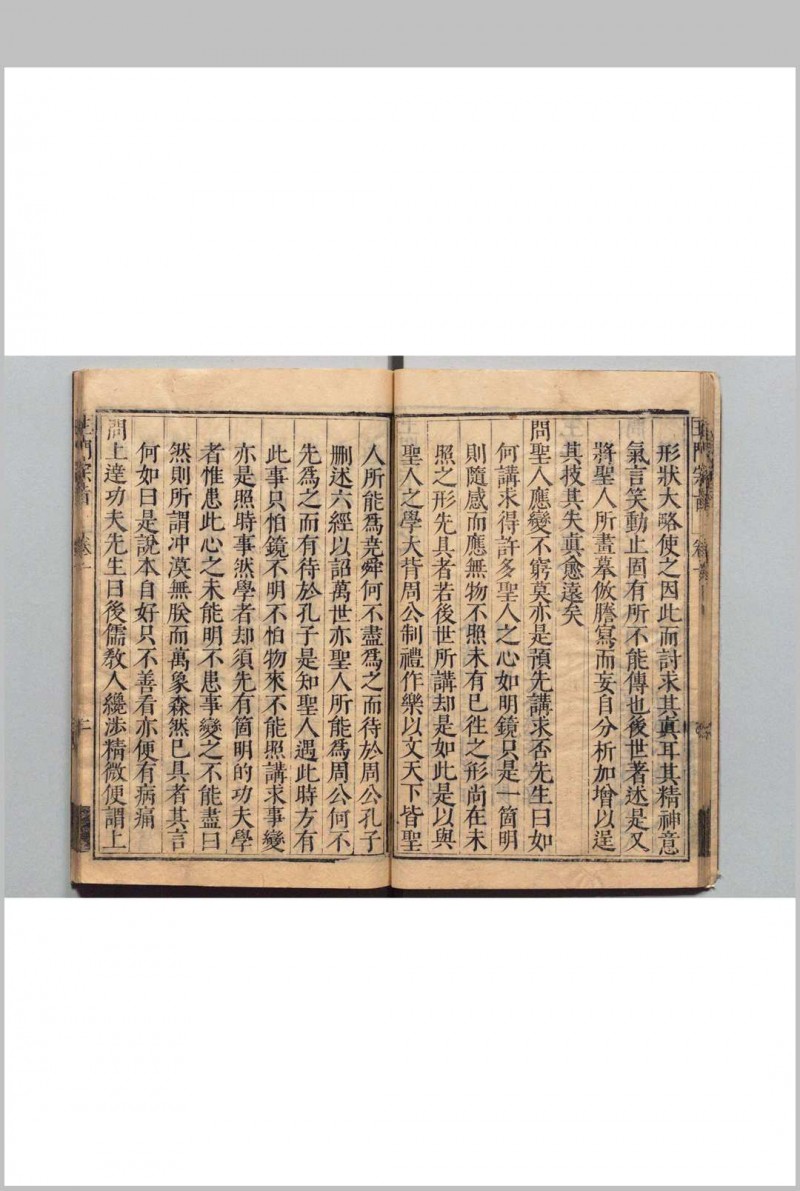 王門宗旨 卷一
形狀大略使之因此而討求其真耳其精神意
氣言笑動止固有所不能傳也後世著述是又
將聖人所畫摹倣謄寫而妄自分析加增以逞
其技其失真愈遠矣
問聖人應變不窮莫亦是預先講求否先生曰如
何講求得許多聖人之心如明鏡只是一箇明
則隨感而應無物不照未有已徃之形尚在未
照之形先具者若後世所講却是如此是以與
聖人之學大背周公制禮作樂以文天下皆聖
人所能爲堯舜何不盡爲之而待於周公孔子
刪述六經以詔萬世亦聖人所能爲周公何不
先爲之而有待於孔子是知聖人遇此時方有
此事只怕鏡不明不怕物來不能照講求事變
亦是照時事然學者却須先有箇明的功夫學
者惟患此心之未能明不患事變之不能盡曰
然則所謂冲漠無朕而萬象森然已具者其言
何如曰是說本自好只不善看亦便有病痛
問上達功夫先生曰後儒教人纔涉精微便謂上
王門宗旨 卷一 十